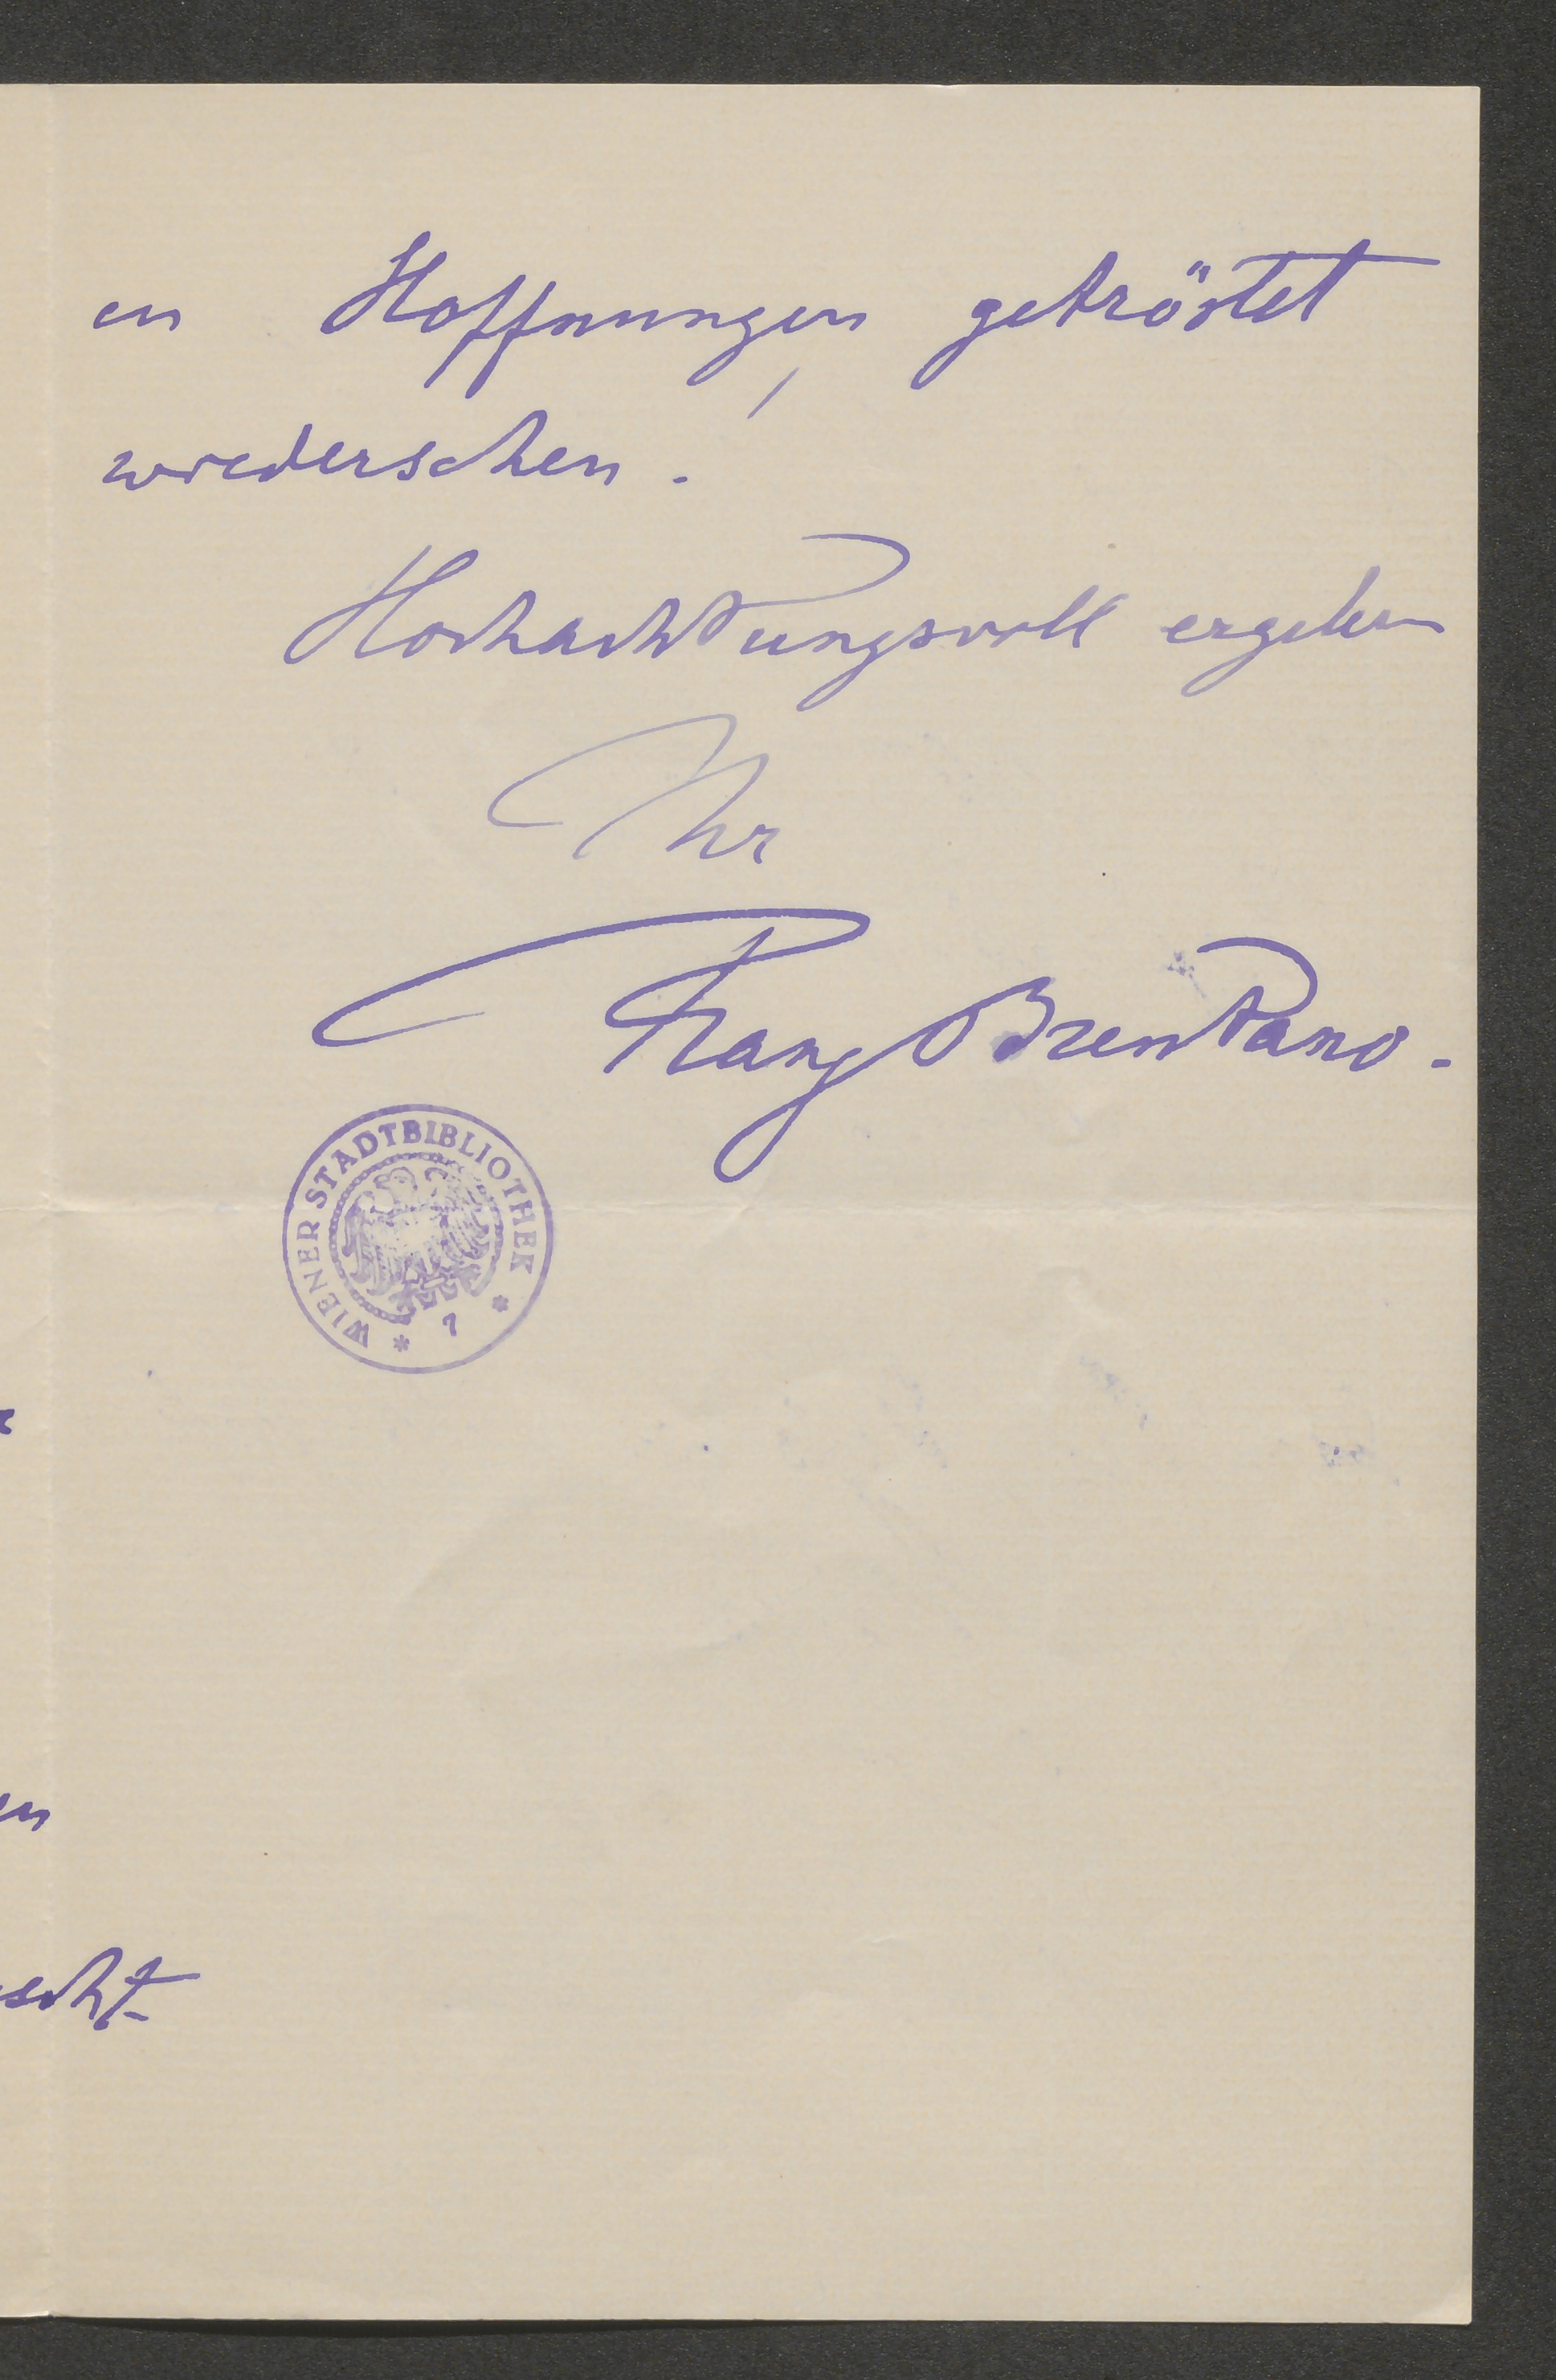 en Hoffnungen getröstet
wiedersehen.
Hochachtungsvoll ergeben
Ihr
Franz Brentano.
WIENER STADTBIBLIOTHEK * 7 *
en
scht